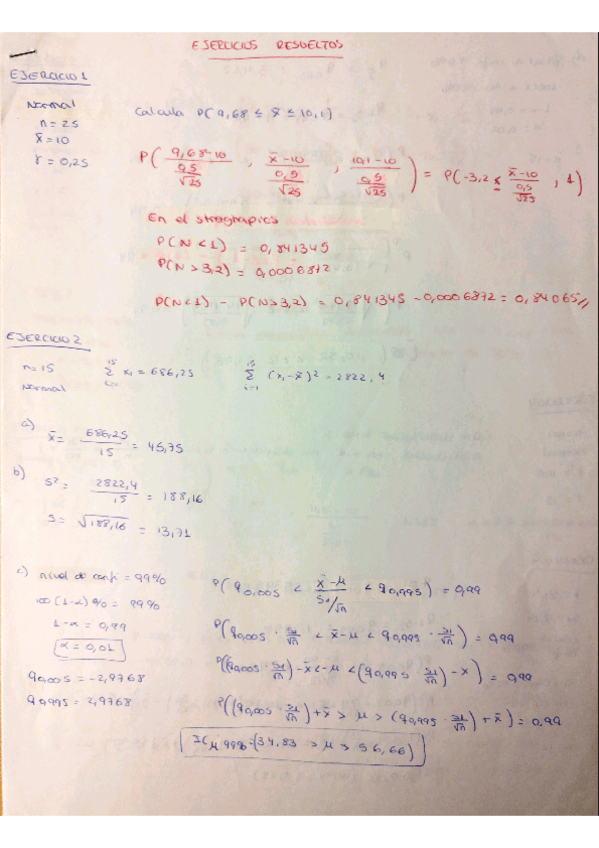 EJERCICIOS RESUELTOS
EJERCICIO 1
Normal
n = 25
x̄ = 10
γ = 0,25
Calcula P(9,68 ≤ x̄ ≤ 10,1)
P( (9,68-10)/(0,5/√25) , (x̄-10)/(0,5/√25) , (10,1-10)/(0,5/√25) ) = P(-3,2 ≤ (x̄-10)/(0,5/√25) , 1)
En el
P(N<1) = 0,841345
P(N>3,2) = 0,0006872
P(N<1) - P(N>3,2) = 0,841345 - 0,0006872 = 0,84065//
EJERCICIO 2
n=15 Σ xi = 686,25 Σ (xi-x̄)² = 2822,4
Normal
a)
x̄ = 686,25/15 = 45,75
b)
S² = 2822,4/15 = 188,16
S = √188,16 = 13,71
c) nivel de conf = 99%
100(1-α)% = 99%
1-α = 0,99
α = 0,01
q0,005 = -2,9768
q0,995 = 2,9768
P( q0,005 < (x̄-μ)/(S1/√n) < q0,995 ) = 0,99
P( q0,005 · S1/√n < x̄-μ < q0,995 · S1/√n ) = 0,99
P( (q0,005 · S1/√n) - x̄ < -μ < (q0,995 S1/√n) - x ) = 0,99
P( (q0,005 · S1/√n) + x̄ > μ > (q0,995 · S1/√n) + x̄ ) = 0,99
ICμ 99% = (34,83 > μ > 56,66)